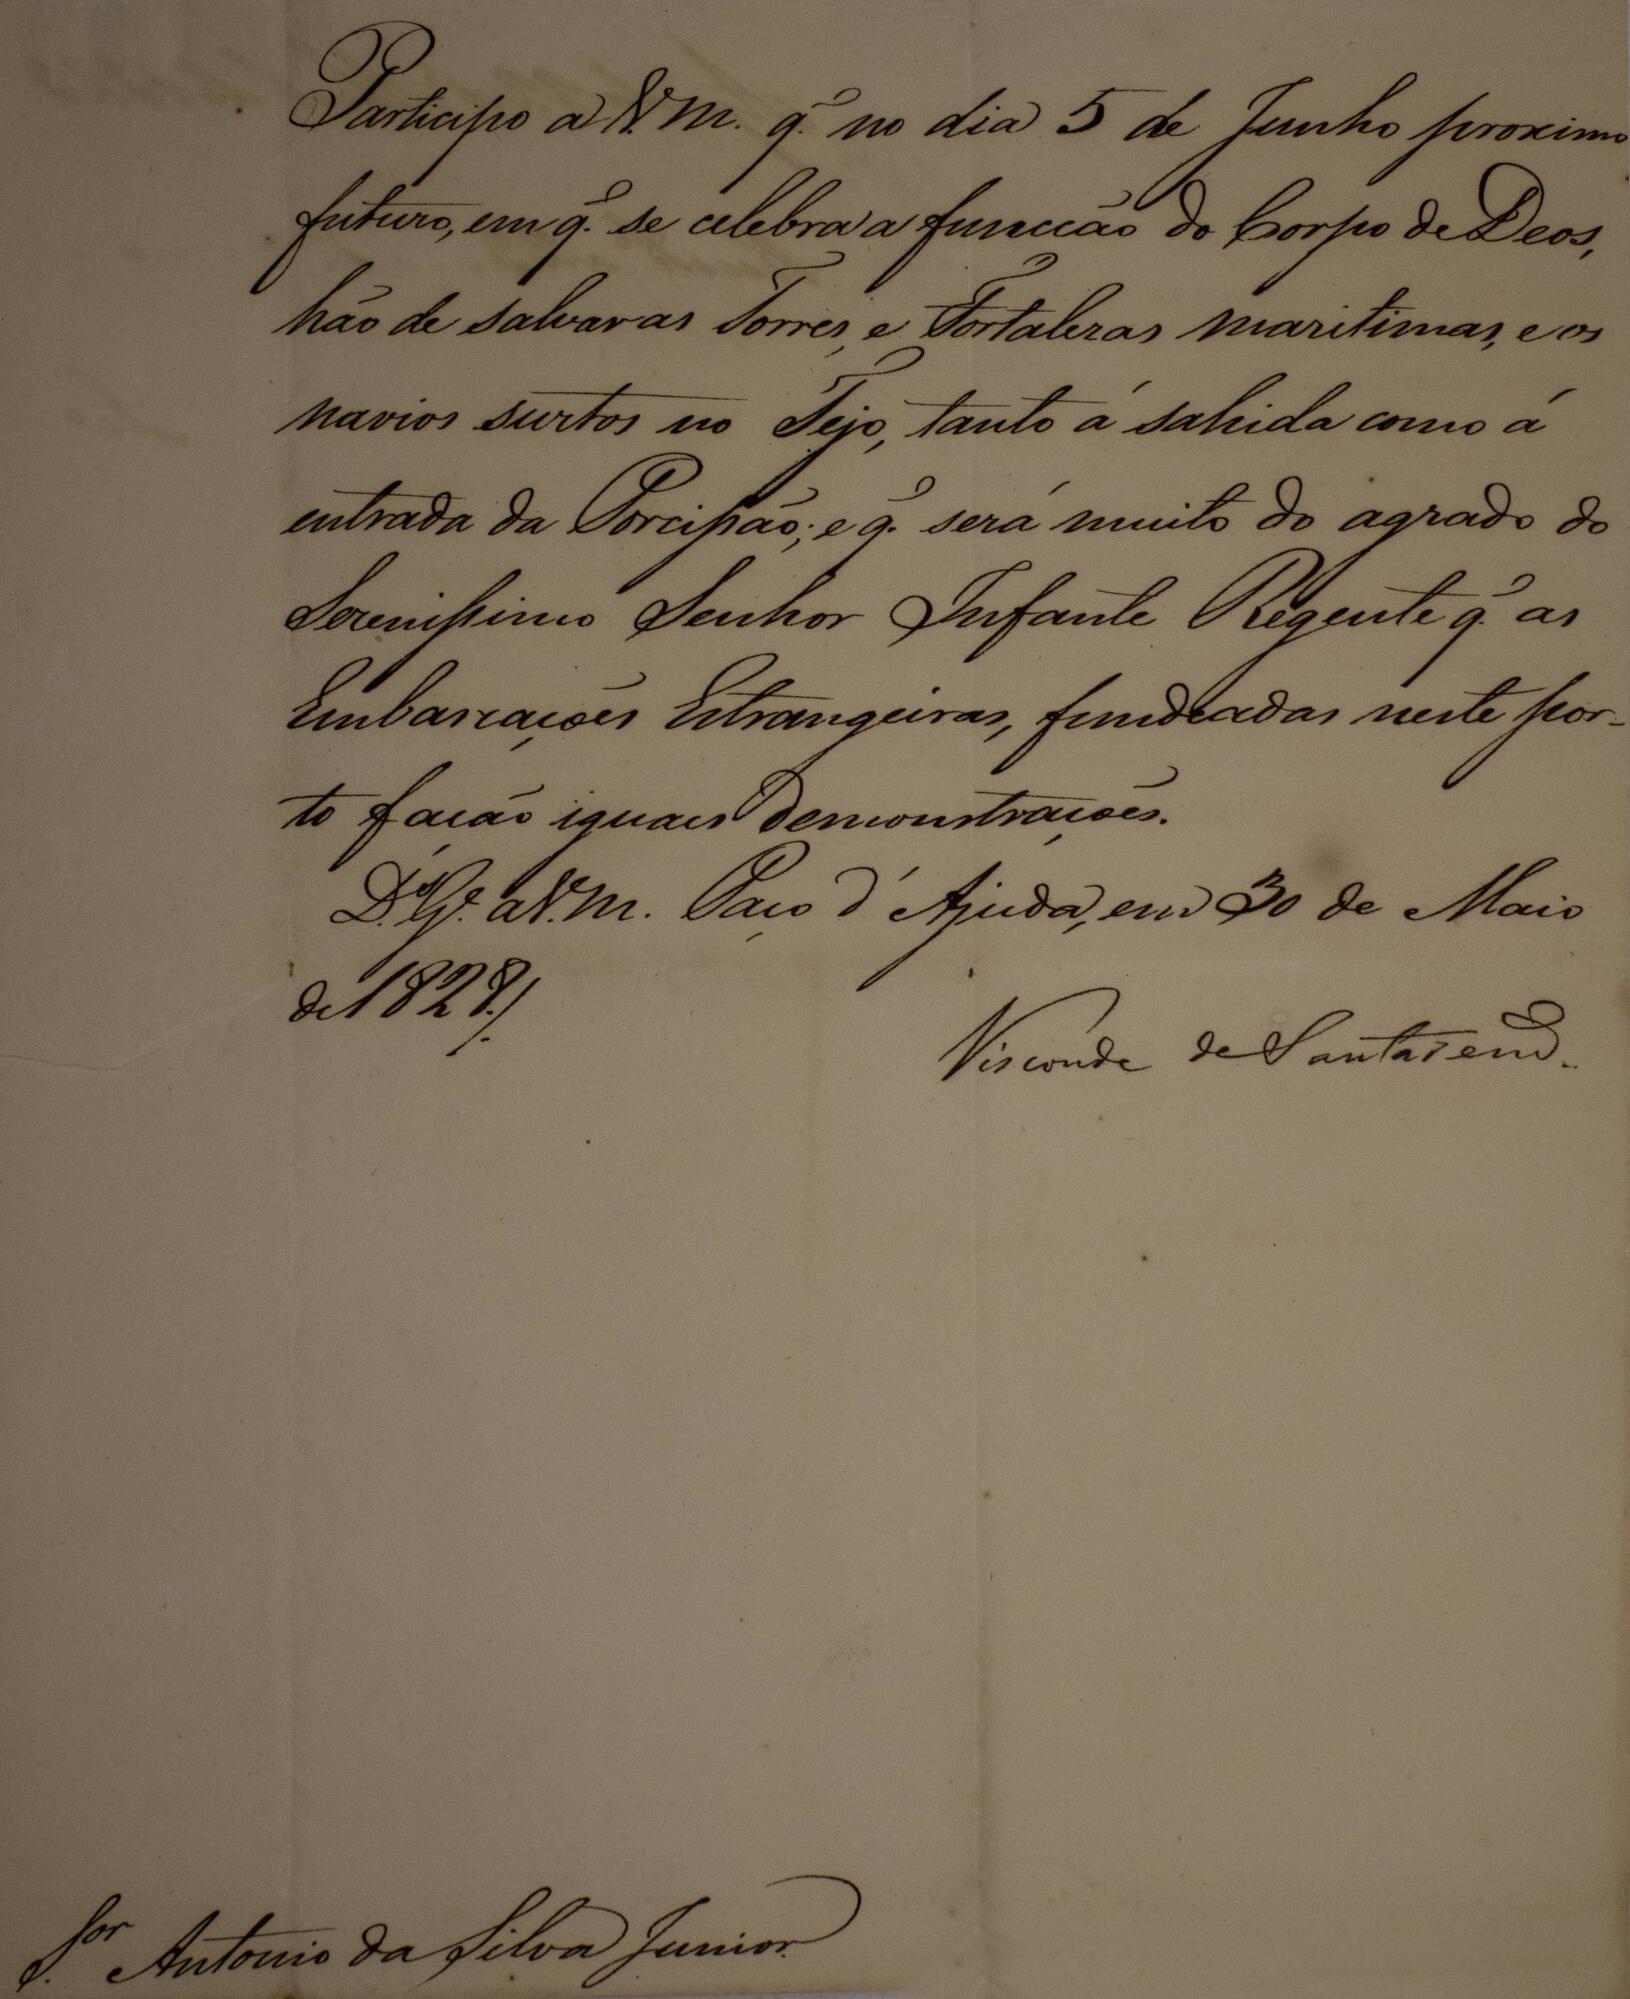 Participo a V. M. q.̃ no dia 5 de Junho proximo
futuro, em q.̃ se celebra a funccão do Corpo de Deos,
hão de salvar as Torres, e Fortalezas maritimas, e os
navios surtos no Tejo, tanto á sahida como á
entrada da Porcissão; e q.̃ será muito do agrado do
Serenissimo Senhor Infante Regente q.̃ as
Embarcações Estrangeiras, fundeadas neste por-
to fação iguaes demonstrações.
D.s G.e a V. M. Paço d'Ajuda, em 30 de Maio
de 1828./
Visconde de Santarem.
S.or Antonio da Silva Junior.